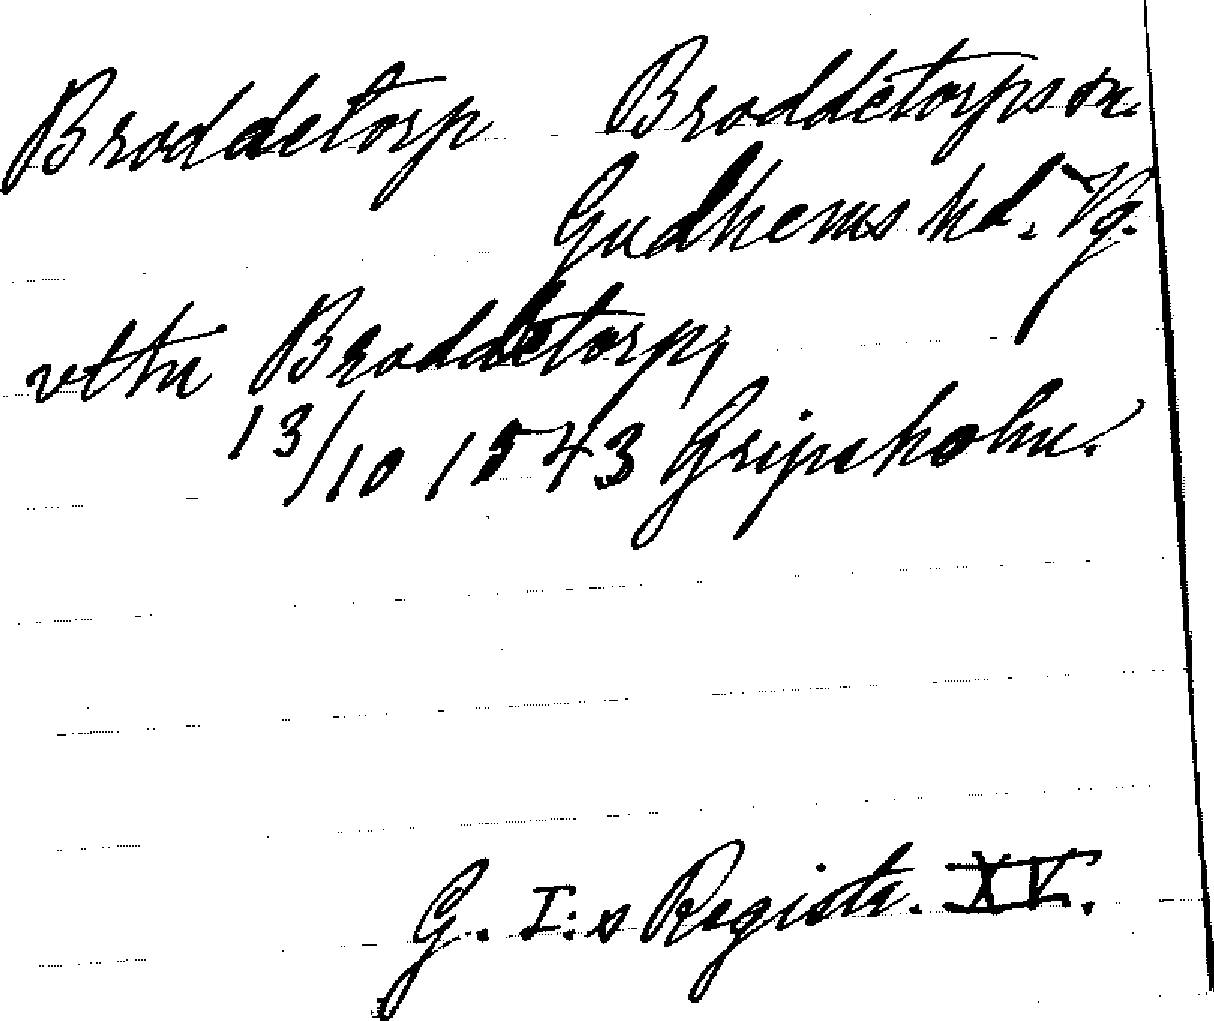 Broddetorp Broddetorps sn.
Gudhems hd. Vg.
vthu Broddetorp,
13/10 1543 Gripsholm.
G. I:s Registr. XV.